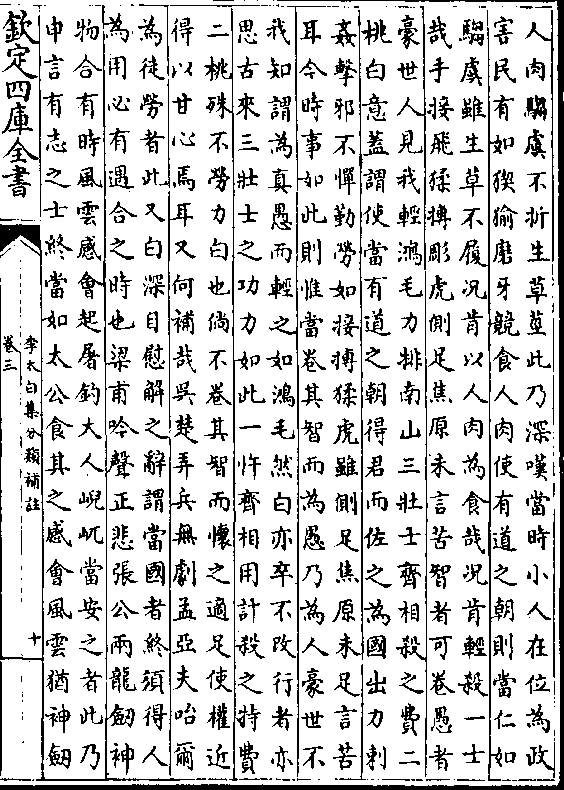 人肉騶虞不折生草莖此乃深嘆當時小人在位為政
害民有如猰㺄磨牙競食人肉使有道之朝則當仁如
騶虞雖生草不履况肯以人肉為食哉况肯輕殺一士
哉手接飛猱搏彫虎側足焦原未言苦智者可卷愚者
豪世人見我輕鴻毛力排南山三壯士齊相殺之費二
桃白意蓋謂使當有道之朝得君而佐之為國出力刺
姦擊邪不憚勤勞如接搏猱虎雖側足焦原未足言苦
耳今時事如此則惟當卷其智而為愚乃為人豪世不
我知謂為真愚而輕之如鴻毛然白亦卒不改行者亦
思古來三壯士之功力如此一忤齊相用計殺之特費
二桃殊不勞力白也倘不卷其智而懷之適足使權近
得以甘心焉耳又何補哉吳楚弄兵無劇孟亞夫咍爾
為徒勞者此又白深自慰解之辭謂當國者終須得人
為用必有遇合之時也梁甫吟聲正悲張公兩龍劒神
物合有時風雲感會起屠釣大人𡸣屼當安之者此乃
申言有志之士終當如太公食其之感會風雲猶神劒
欽定四庫全書
李太白集分類補註
卷三
十